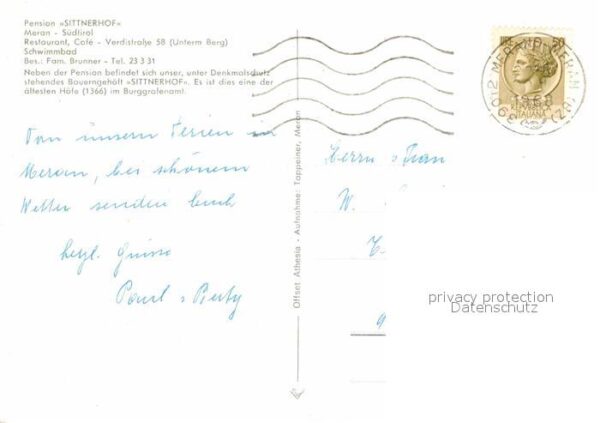 Pension »SITTNERHOF«
Meran - Südtirol
Restaurant, Café - Verdistraße 58 (Unterm Berg)
Schwimmbad
Bes.: Fam. Brunner - Tel. 23 3 31
Neben der Pension befindet sich unser, unter Denkmalschutz
stehendes Bauerngehöft »SITTNERHOF«. Es ist dies eine der
ältesten Höfe (1366) im Burggrafenamt.
Von unsern Ferien in
Meran, bei schönem
Wetter senden Euch
herzl. Grüsse
Paul
Offset Athesia - Aufnahme: Tappeiner, Meran
Herrn
W.
privacy protection
Datenschutz
50
ITALIANA